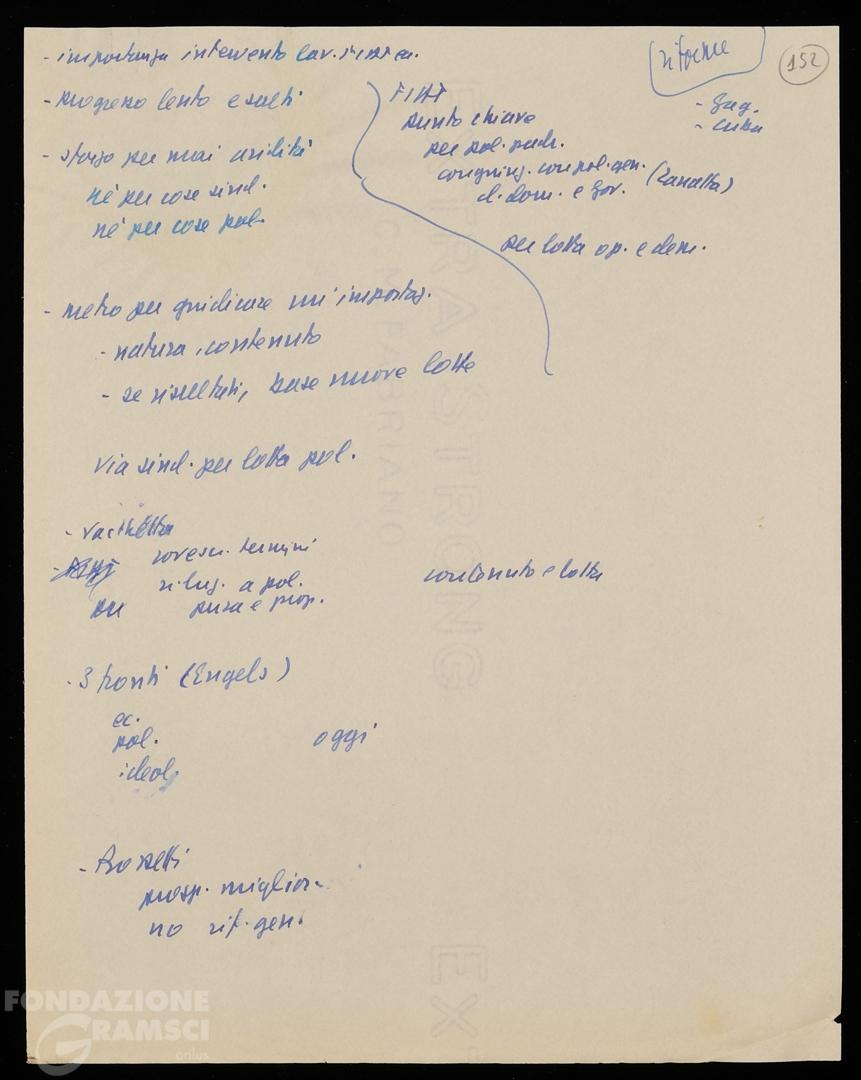 riforme
152
- importanza intervento lav.
- progresso lento e salti
- sforzo per mai
né per cose sind.
né per cose pol.
- Gag.
- Cuba
FIAT
punto chiave
per pol. padr.
congiung. con pol. gen.
cl. dom. e Gov. (Zanatta)
per lotta op. e dem.
- metro per giudicare un' import.
- natura, contenuto
- se risultati, base nuove lotte
Via sind. per lotta pol.
- Vacchetta
rovesc. termini
a pol.
per pura e prop.
contenuto e lotta
- 3 fronti (Engels)
ec.
pol.
ideol.
oggi
prosp. miglior.
no rif. gen.
EXTRA STRONG
FABRIANO
EX
FONDAZIONE
GRAMSCI
onlus